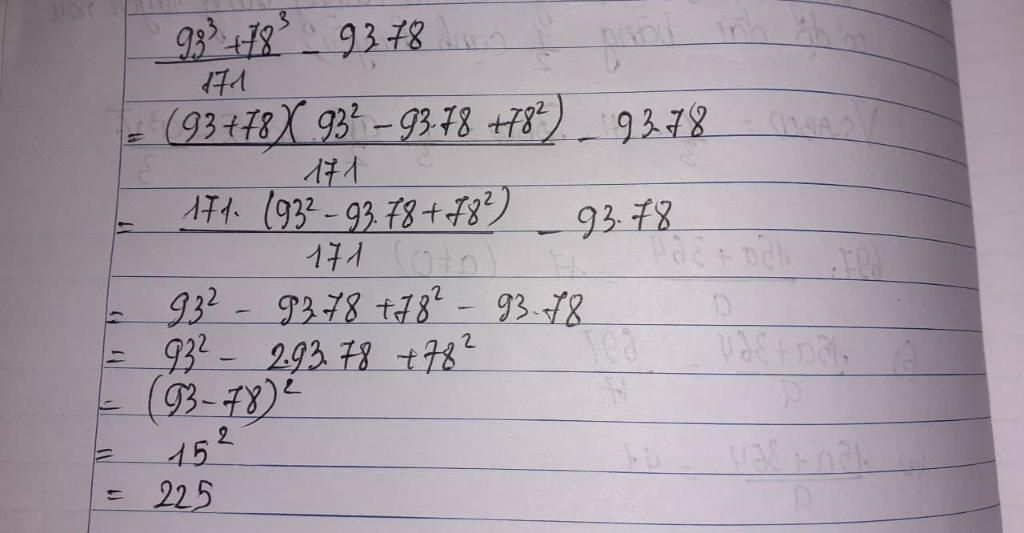 93³ + 78³ / 171 - 93.78
= (93 + 78)(93² - 93.78 + 78²) / 171 - 93.78
= 171. (93² - 93.78 + 78²) / 171 - 93.78
= 93² - 93.78 + 78² - 93.78
= 93² - 2.93.78 + 78²
= (93 - 78)²
= 15²
= 225